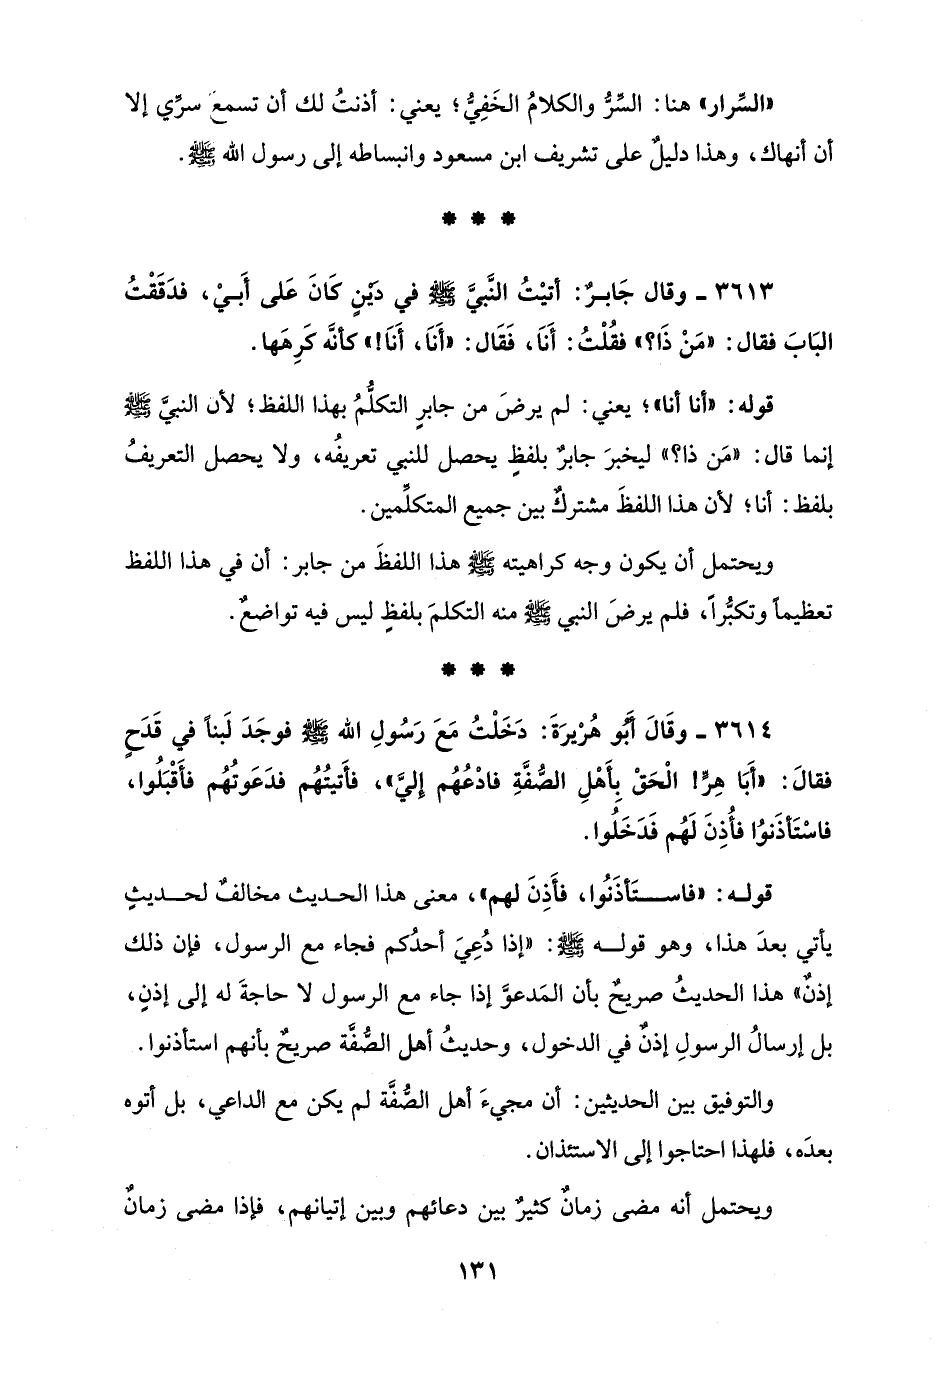 «السِّرار» هنا: السِّرُّ والكلامُ الخَفِيُّ؛ يعني: أذنتُ لك أن تسمعَ سرِّي إلا
أن أنهاك، وهذا دليلٌ على تشريف ابن مسعود وانبساطه إلى رسول الله ﷺ.
* * *
٣٦١٣ ـ وقال جَابرٌ: أتيْتُ النَّبيَّ ﷺ في دَيْنٍ كَانَ عَلى أَبيْ، فدَقَقْتُ
البَابَ فقال: «مَنْ ذَا؟» فقُلْتُ: أَنَا، فَقَال: «أَنَا، أَنَا!» كأنَّه كَرِهَها.
قوله: «أنا أنا»؛ يعني: لم يرضَ من جابرٍ التكلُّمُ بهذا اللفظ؛ لأن النبيَّ ﷺ
إنما قال: «مَن ذا؟» ليخبرَ جابرٌ بلفظٍ يحصل للنبي تعريفُه، ولا يحصل التعريفُ
بلفظ: أنا؛ لأن هذا اللفظَ مشتركٌ بين جميع المتكلِّمين.
ويحتمل أن يكون وجه كراهيته ﷺ هذا اللفظَ من جابر: أن في هذا اللفظ
تعظيماً وتكبُّراً، فلم يرضَ النبي ﷺ منه التكلمَ بلفظٍ ليس فيه تواضعٌ.
* * *
٣٦١٤ ـ وقَالَ أَبُو هُرْيرَةَ: دَخَلْتُ مَعَ رَسُولِ الله ﷺ فوجَدَ لَبناً في قَدَحٍ
فقالَ: «أَبَا هِرٍّ! الْحَقْ بِأَهْلِ الصُّفَّةِ فادْعُهُم إليَّ»، فأَتيتُهُم فدَعَوتُهُم فأَقْبَلُوا،
فاسْتَأذَنوُا فأُذِنَ لَهُم فَدَخَلُوا.
قولـه: «فاستَأذَنُوا، فأَذِنَ لهم»، معنى هذا الحديث مخالفٌ لحديثٍ
يأتي بعدَ هذا، وهو قولـه ﷺ: «إذا دُعِيَ أحدُكم فجاء مع الرسول، فإن ذلك
إذنٌ» هذا الحديثُ صريحٌ بأن المَدعوَّ إذا جاء مع الرسول لا حاجةَ له إلى إذنٍ،
بل إرسالُ الرسولِ إذنٌ في الدخول، وحديثُ أهل الصُّفَّة صريحٌ بأنهم استأذنوا.
والتوفيق بين الحديثين: أن مجيءَ أهل الصُّفَّة لم يكن مع الداعي، بل أتوه
بعدَه، فلهذا احتاجوا إلى الاستئذان.
ويحتمل أنه مضى زمانٌ كثيرٌ بين دعائهم وبين إتيانهم، فإذا مضى زمانٌ
١٣١